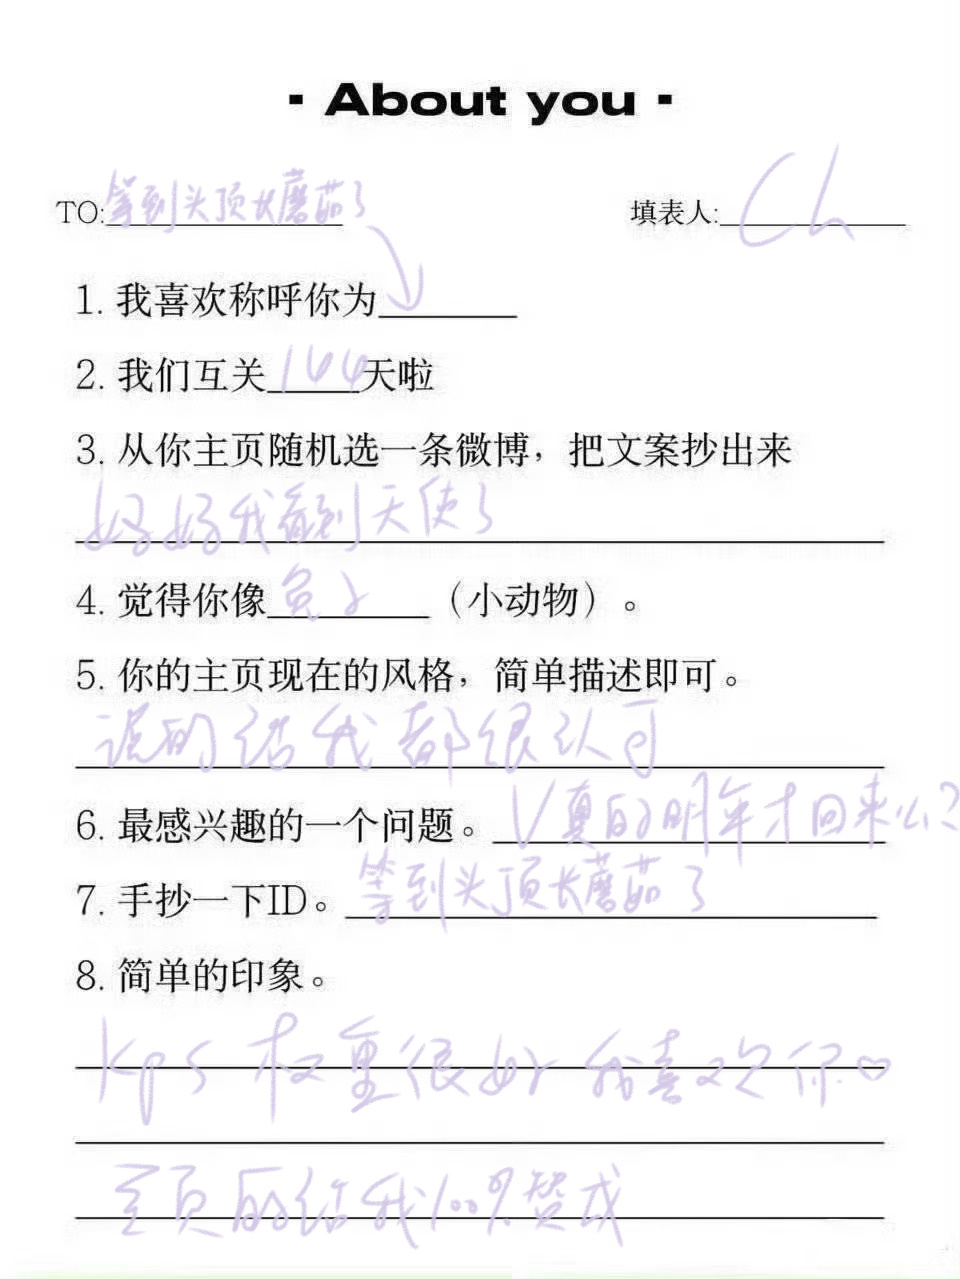 - About you -
TO:等到头顶长蘑菇了 填表人:Ch
1. 我喜欢称呼你为
2. 我们互关144天啦
3. 从你主页随机选一条微博，把文案抄出来
好好我看到天使了
4. 觉得你像兔子（小动物）。
5. 你的主页现在的风格，简单描述即可。
说的话我都很认可
6. 最感兴趣的一个问题。V真的明年才回来么?
7. 手抄一下ID。等到头顶长蘑菇了
8. 简单的印象。
kps权重很好 我喜欢你♡
主页的话我100%赞成